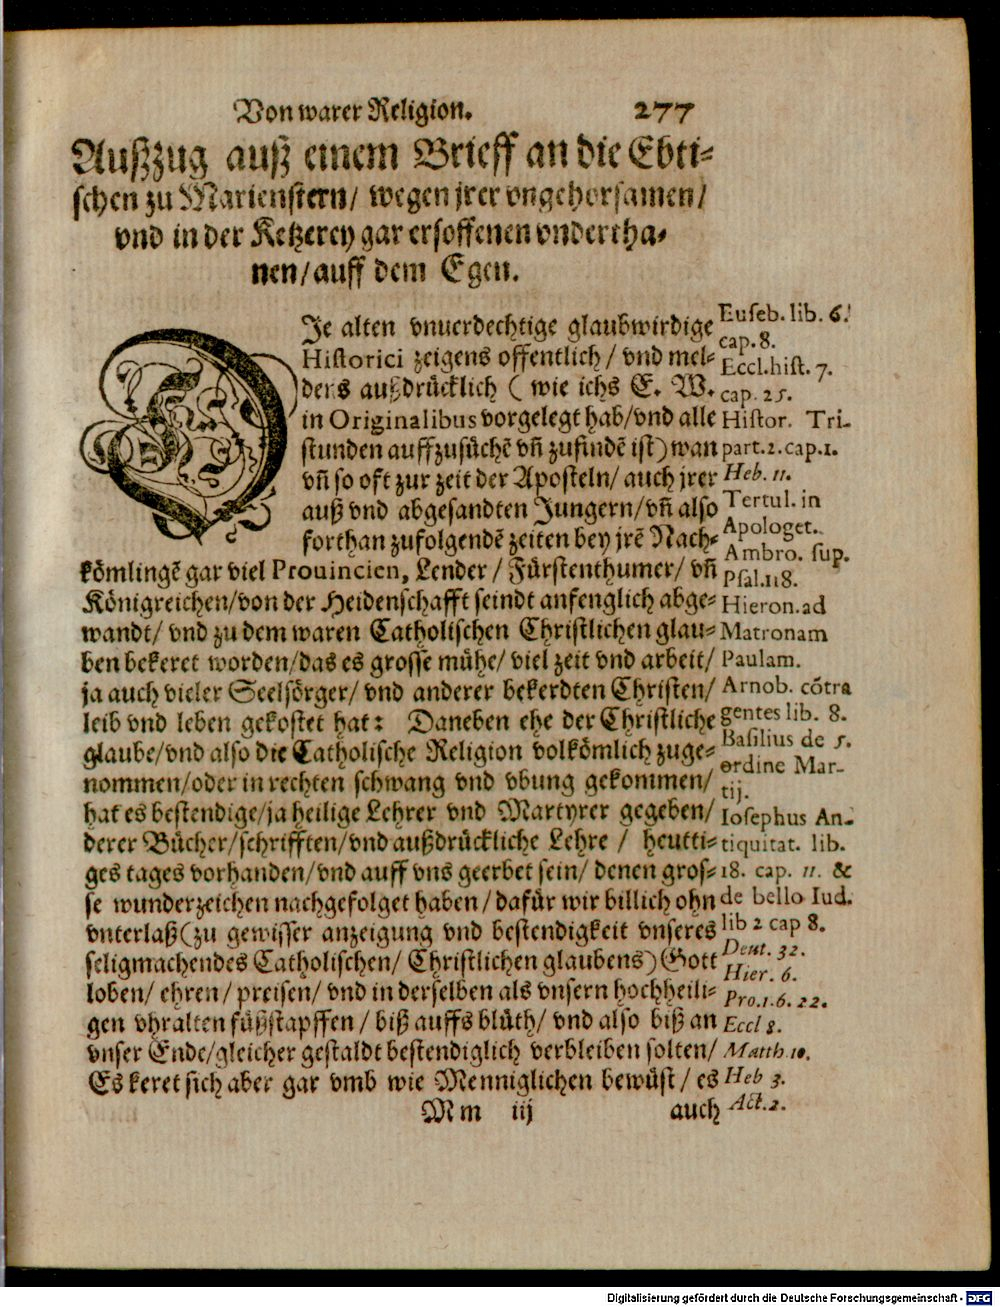 Von warer Religion. 277
Außzug auß einem Brieff an die Ebti⸗
schen zu Marienstern/ wegen jrer vngehorsamen/
vnd in der Ketzerey gar ersoffenen vndertha⸗
nen/ auff dem Egen.
DJe alten vnuerdechtige glaubwirdige
Historici zeigens offentlich/ vnd mel⸗
dens außdrücklich (wie ichs E. W.
in Originalibus vorgelegt hab/ vnd alle
stunden auffzusüchē vn̄ zufindē ist) wan
vn̄ so oft zur zeit der Aposteln/ auch jrer
auß vnd abgesandten Jungern/ vn̄ also
forthan zufolgendē zeiten bey jrē Nach⸗
kömlingē gar viel Prouincien, Lender/ Fürstenthumer/ vn̄
Königreichen/ von der Heidenschafft seindt anfenglich abge⸗
wandt/ vnd zu dem waren Catholischen Christlichen glau⸗
ben bekeret worden/ das es grosse mühe/ viel zeit vnd arbeit/
ja auch vieler Seelsörger/ vnd anderer bekerdten Christen/
leib vnd leben gekostet hat: Daneben ehe der Christliche
glaube/ vnd also die Catholische Religion volkömlich zuge⸗
nommen/ oder in rechten schwang vnd vbung gekommen/
hat es bestendige/ ja heilige Lehrer vnd Martyrer gegeben/
derer Bücher/ schrifften/ vnd außdrückliche Lehre / heutti⸗
ges tages vorhanden/ vnd auff vns geerbet sein/ denen gros⸗
se wunderzeichen nachgefolget haben/ dafür wir billich ohn
vnterlaß (zu gewisser anzeigung vnd bestendigkeit vnseres
seligmachendes Catholischen/ Christlichen glaubens) Gott
loben/ ehren/ preisen/ vnd in derselben als vnsern hochheili⸗
gen vhralten füßstapffen/ biß auffs blüth/ vnd also biß an
vnser Ende/ gleicher gestaldt bestendiglich verbleiben solten/
Es keret sich aber gar vmb wie Menniglichen bewüst/ es
Mm iij auch
Euseb. lib. 6.
cap. 8.
Eccl. hist. 7.
cap. 25.
Histor. Tri-
part. 2. cap. 1.
Heb. 11.
Tertul. in
Apologet.
Ambro. sup.
Psal. 118.
Hieron. ad
Matronam
Paulam.
Arnob. cōtra
gentes lib. 8.
Basilius de 5.
ordine Mar-
tij.
Iosephus An-
tiquitat. lib.
18. cap. 11. &
de bello Iud.
lib 2 cap 8.
Deut. 32.
Hier. 6.
Pro. 1. 6. 22.
Eccl 8.
Matth 10.
Heb 3.
Act. 2.
Digitalisierung gefördert durch die Deutsche Forschungsgemeinschaft - DFG